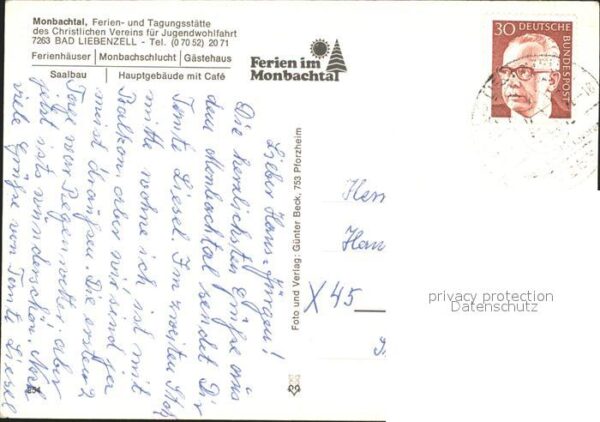 Monbachtal, Ferien- und Tagungsstätte
des Christlichen Vereins für Jugendwohlfahrt
7263 BAD LIEBENZELL - Tel. (0 70 52) 20 71
Ferienhäuser | Monbachschlucht | Gästehaus
Saalbau | Hauptgebäude mit Café
Ferien im
Monbachtal
30 DEUTSCHE
BUNDESPOST
Lieber Hans-Jürgen!
Die herzlichsten Grüße aus
dem Monbachtal sendet Dir
Tante Liesel. Im zweiten Stock
mitte wohne ich ist mit
Balkon aber wir sind ja
meist draußen. Die ersten 2
Tage war Regenwetter aber
jetzt ists wunderschön. Noch
viele Grüße von Tante Liesel
Foto und Verlag: Günter Beck, 753 Pforzheim
Herr
Han
X 45
privacy protection
Datenschutz